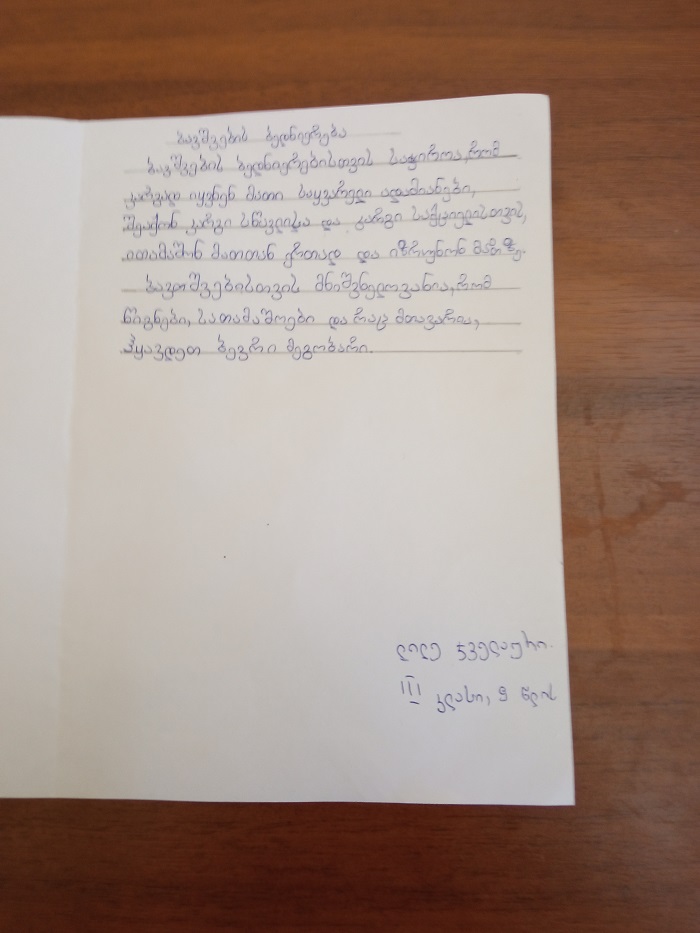 ბავშვების ბედნიერება
ბავშვების ბედნიერებისთვის საჭიროა, რომ
კარგად იყვნენ მათი საყვარელი ადამიანები,
შეაქონ კარგი სწავლისა და კარგი საქციელისთვის,
ითამაშონ მათთან ერთად და იზრუნონ მათზე.
ბავშვებისთვის მნიშვნელოვანია, რომ
წიგნები, სათამაშოები და რაც მთავარია,
ჰყავდეთ ბევრი მეგობარი.
ლილე
III კლასი, 9 წლის